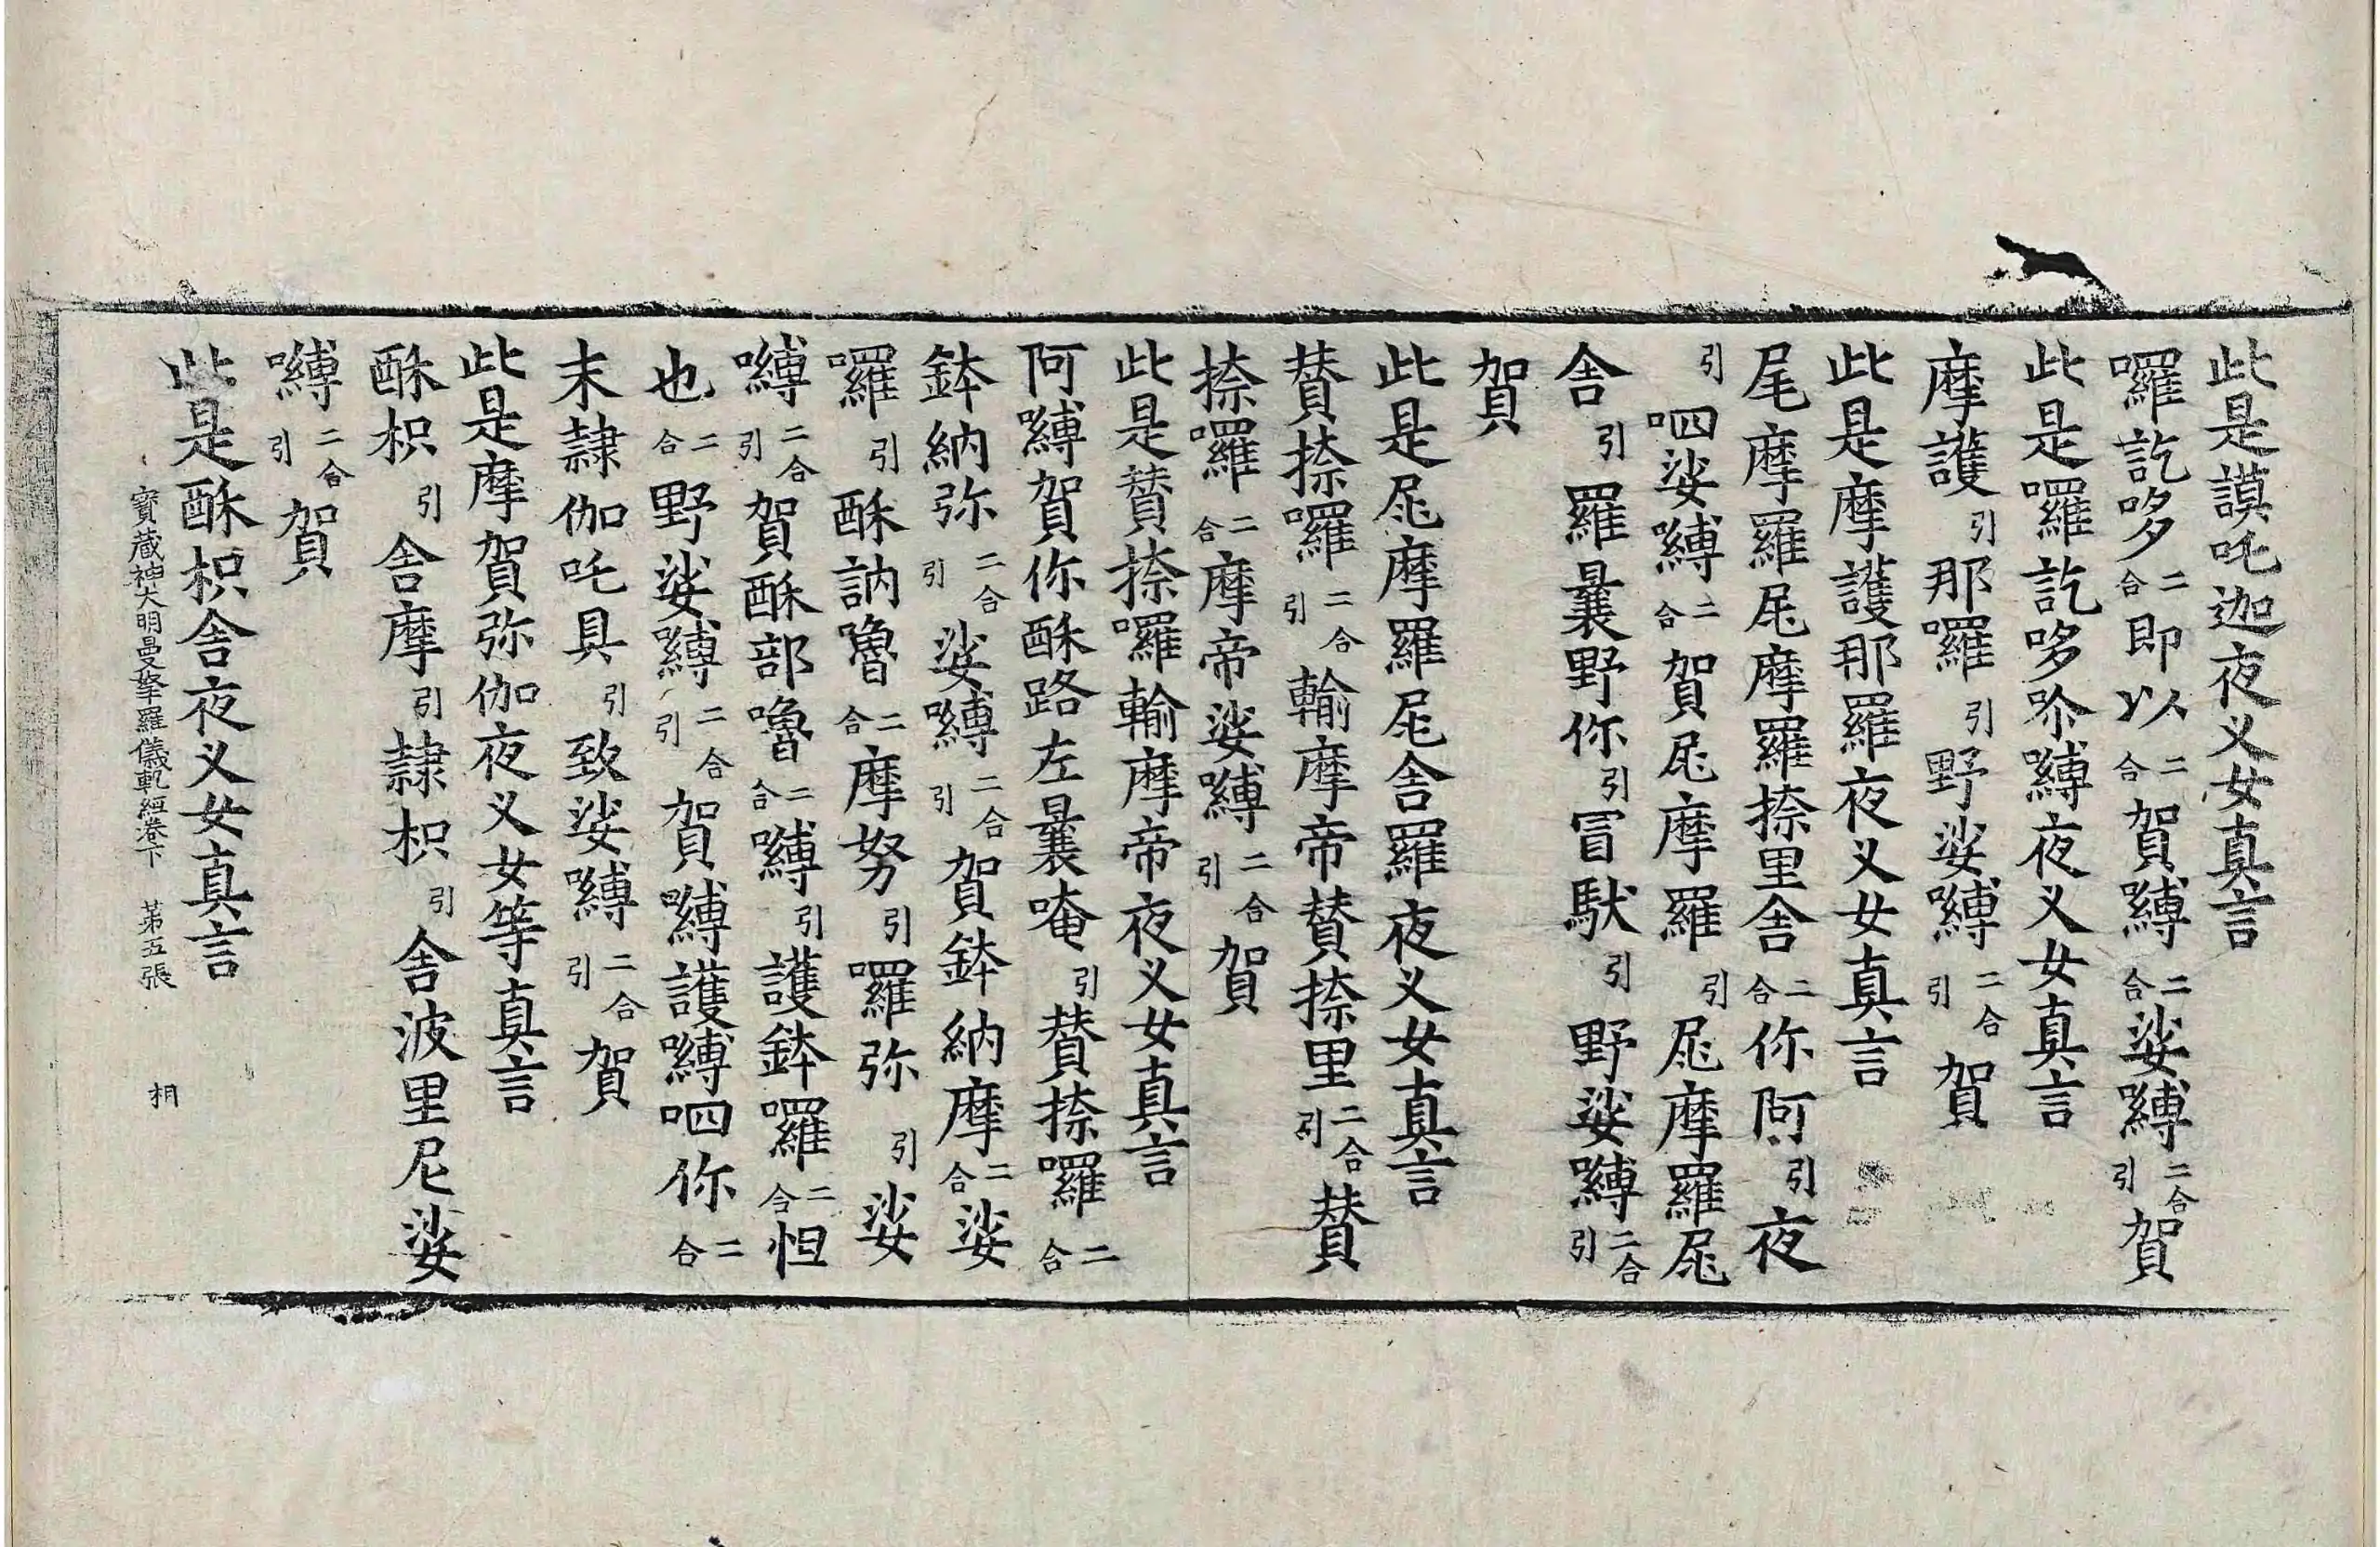 此是謨吒迦夜义女真言
囉訖哆二合即以二合賀嚩二合娑嚩二合引賀
此是囉訖哆嚩夜义女真言
摩護引那囉引野娑嚩二合引賀
此是摩護那羅夜义女真言
尾摩羅尾摩羅捺里舎二合你阿引夜
引呬娑嚩二合賀尾摩羅引尾摩羅尾
舎引羅曩野你引冐馱引野娑嚩二合引
賀
此是尾摩羅尾舎羅夜义女真言
賛捺囉二合引輸摩帝賛捺里二合引賛
捺囉二合摩帝娑嚩二合引賀
此是賛捺囉輸摩帝夜义女真言
阿嚩賀你酥路左曩唵引賛捺囉二合
鉢納弥二合引娑嚩二合引賀鉢納摩二合娑
囉引酥訥嚕二合摩努引囉弥引娑
嚩二合引賀酥部嚕二合嚩引護鉢囉二合怛
也二合野娑嚩二合引賀嚩護嚩呬你二合
末隷伽吒具引致娑嚩二合引賀
此是摩賀弥伽夜义女等真言
酥枳引舎摩引隷枳引舎波里尼娑
嚩二合引賀
此是酥枳舎夜义女真言
寶蔵神大明曼拏羅儀軌經卷下 苐五張 相